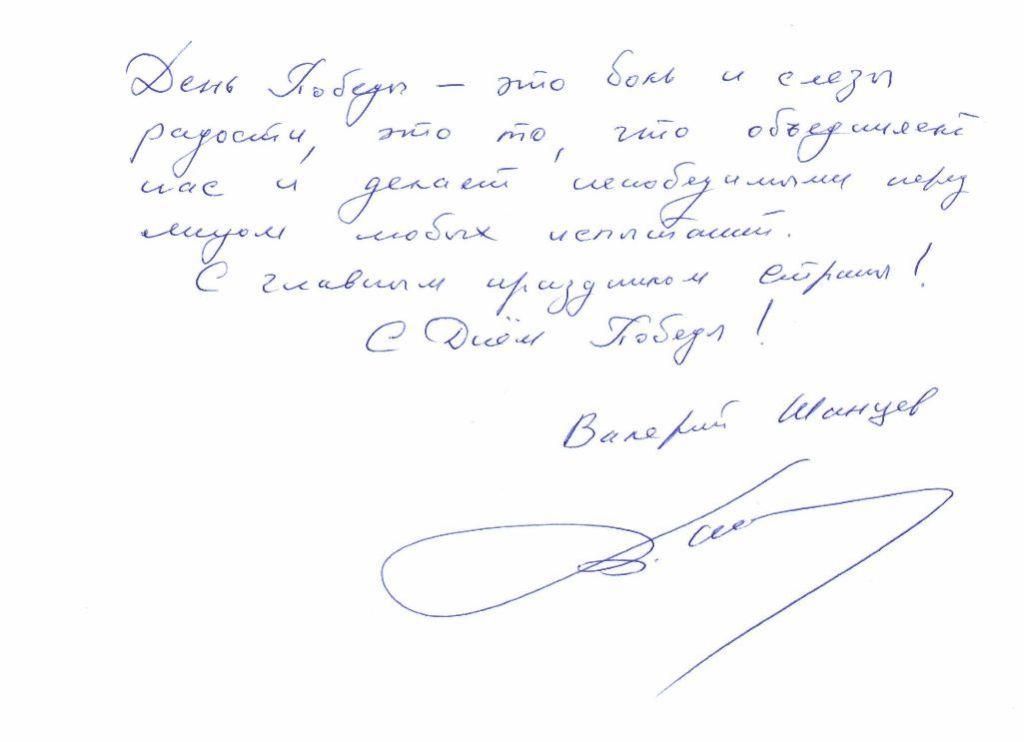 День Победы — это боль и слезы
радости, это то, что объединяет
нас и делает непобедимыми перед
лицом любых испытаний.
С главным праздником страны!
С Днём Победы!
Валерий Шанцев
В. Ша